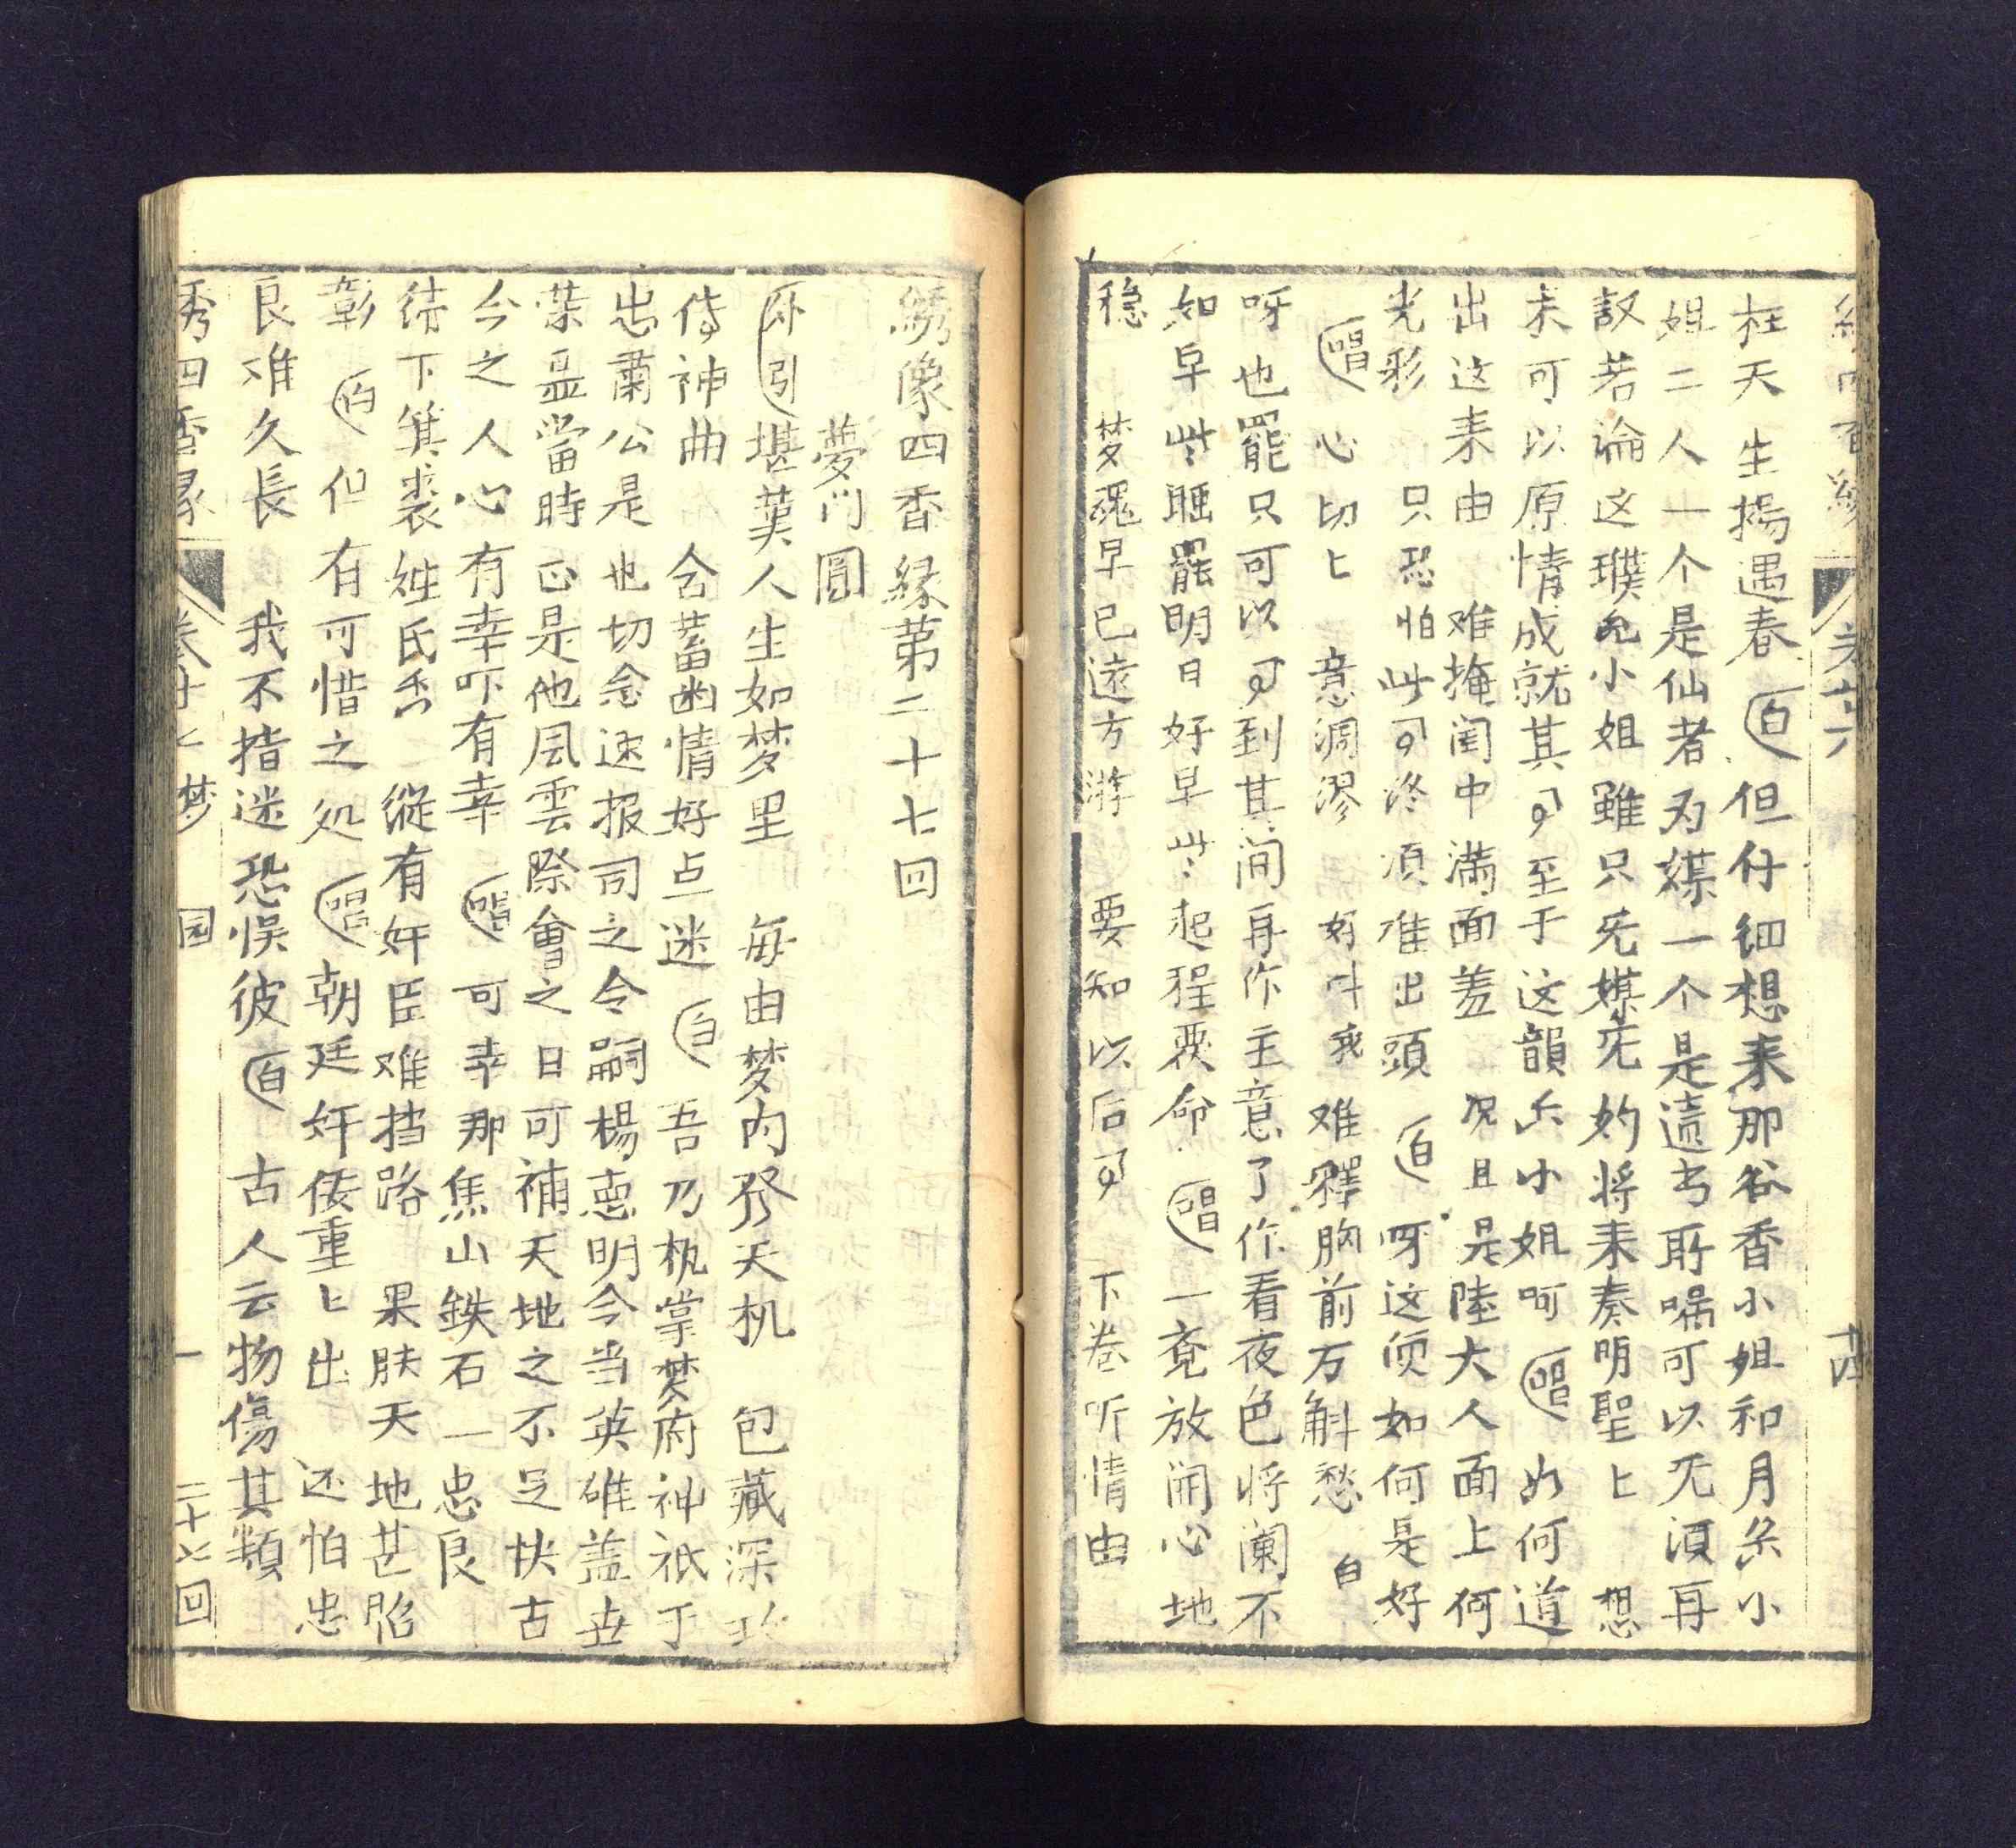 卷廿六
十四
枉天生搗遇春 白 但仔細想来那谷香小姐和月糸小
姐二人一个是仙者为媒一个是遗书可以无湏再
説若論这璞允小姐雖只旡媒旡妁将来奏明聖上 想
未可以原情成就其事至于这韻小姐呵 唱 如何道
出这来由 难掩闺中满面羞 况且是陸大人面上何
光彩 只恐怕此事终湏难出頭 白 呀这便如何是好
唱 心切匕 意凋謬 好叫我 难釋胸前万斛愁 白
呀也罷只可以事到其间再作主意了你看夜色将阑不
如早些睡罷明日好早些起程覆命 唱 一竟放開心地
稳 梦魂早已遠方游 要知以后事 下卷听情由
綉像四香緣第二十七回
夢門圓
外引 堪莫人生如梦里 每由梦内發天机 包藏深
传神曲 含蓄幽情好点迷 白 吾乃执掌梦府神祇于
忠肅公是也切念速报司之令嗣楊憲明今当英雄盖世
業盖當時正是他風雲際會之日可補天地之不足快古
今之人心有幸吓有幸 唱 可幸那焦山鉄石一忠良
待下箕裘姓氏香 縱有奸臣难挡路 果朕天地甚昭
彰 白 但有可惜之处 唱 朝廷奸佞重匕出 还怕忠
良难久長 我不指迷恐悮彼 白 古人云物傷其類
秀四香緣 卷廿七 梦 园 一 二十七回